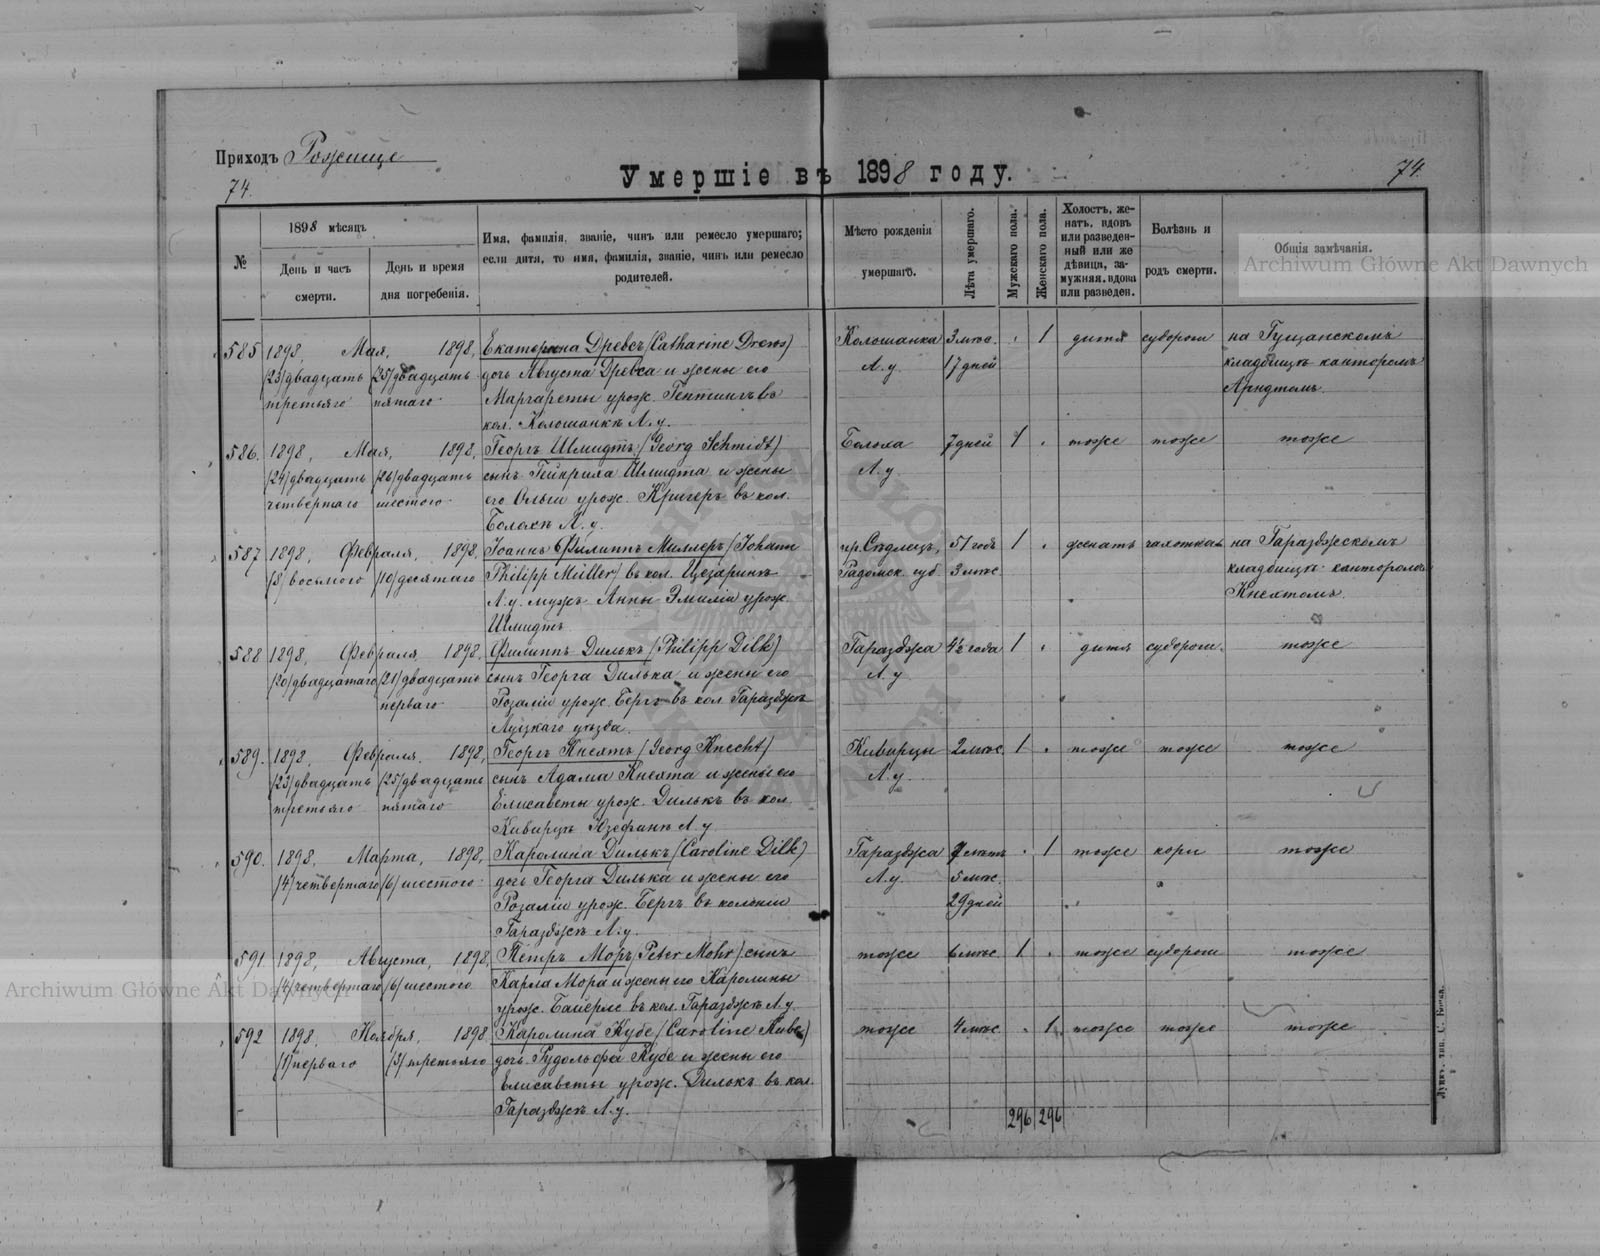 Приходъ Рожище
74.
Умершіе въ 1898 году.
74.
№
1898 мѣсяцъ
День и часъ смерти.
День и время дня погребенія.
Имя, фамилія, званіе, чинъ или ремесло умершаго;
если дитя, то имя, фамилія, званіе, чинъ или ремесло
родителей.
Мѣсто рожденія
умершаго.
Лѣта умершаго.
Мужскаго пола.
Женскаго пола.
Холостъ, же-
натъ, вдовъ
или разведен-
ный или же
дѣвица, за-
мужняя, вдова
или разведен.
Болѣзнь и
родъ смерти.
Общія замѣчанія.
Archiwum Główne Akt Dawnych
585 1898, Мая, 1898, Екатерина Древсъ (Catharine Drews) Колошанка 3 мѣс. 1 дитя судороги на Гущанскомъ
(23) двадцать (25) двадцать дочь Августа Древса и жены его Л. у. 17 дней кладбищѣ канторомъ
третьяго пятаго Маргареты урож. въ Арндтомъ
кол. Колошанкѣ Л. у.
586. 1898, Мая, 1898, Георгъ Шмидтъ (Georg Schmidt) Болоха 7 дней 1 тоже тоже тоже
(24) двадцать (26) двадцать сынъ Гейнриха Шмидта и жены Л. у.
четвертаго шестого его Ольги урож. Кригеръ въ кол.
Болохѣ Л. у.
587 1898, Февраля, 1898, Іоаннъ Филиппъ Миллеръ (Johann гр. Сѣдлецъ, 51 годъ 1 женатъ чахотка на Гаразджскомъ
(8) восьмого (10) десятаго Philipp Müller) въ кол. Цезаринѣ Радомск. губ. 3 мѣс. кладбищѣ канторомъ
Л. у. мужъ Анны Эмиліи урож. Кнехтомъ.
Шмидтъ
588 1898, Февраля 1898, Филиппъ Дилькъ (Philipp Dilk) Гаразджа 4½ года 1 дитя судороги. тоже
(20) двадцатаго (21) двадцать сынъ Георга Дилька и жены его Л. у.
перваго Розаліи урож. Бергъ въ кол. Гаразджѣ
Луцкаго уѣзда.
589. 1898, Февраля, 1898, Георгъ Кнехтъ (Georg Knecht) Киверцы 2 мѣс. 1 тоже тоже тоже
(23) двадцать (25) двадцать сынъ Адама Кнехта и жены его Л. у.
третьяго пятаго Елисаветы урож. Дилькъ въ кол.
Киверцѣ Юзефинѣ Л. у.
590. 1898, Марта, 1898, Каролина Дилькъ (Caroline Dilk) Гаразджа лѣтъ 1 тоже кори тоже
(4) четвертаго (6) шестого дочь Георга Дилька и жены его Л. у. 5 мѣс.
Розаліи урож. Бергъ въ колоніи 29 дней
Гаразджѣ Л. у.
591 1898, Августа, 1898, Петръ Моръ (Peter Mohr) сынъ тоже 6 мѣс. 1 тоже судороги тоже
(4) четвертаго (6) шестого Карла Мора и жены его Каролины
урож. Байерле въ кол. Гаразджѣ Л. у.
592 1898, Ноября, 1898, Каролина Кубе (Caroline Kube) тоже 4 мѣс. 1 тоже тоже тоже
(1) перваго (3) третьяго дочь Рудольфа Кубе и жены его
Елисаветы урож. Дилькъ въ кол.
Гаразджѣ Л. у.
296 296
Archiwum Główne Akt Dawnych